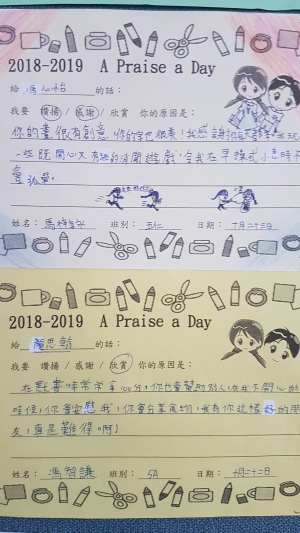 2018-2019 A Praise a Day
給 馮心怡 的話:
我要 讚揚 / 感謝 / 欣賞 你的原因是:
你的畫很有創意,你的字也很美!我感謝
一些既開心又有的消閒遊戲,令我在乎操式小息時不
會孤單。
姓名: 馮 班別: 五仁 日期: 十月二十三日
2018-2019 A Praise a Day
給 思翰 的話:
我要 讚揚 / 感謝 / 欣賞 你的原因是:
在默書時常常拿100分,你也會幫助別人,在我不開心的
時候,你會安慰我,你會分享食物,我有你這樣好的朋
友,真是難得啊!
姓名: 馮智謙 班別: 5A 日期: 十月二十二日